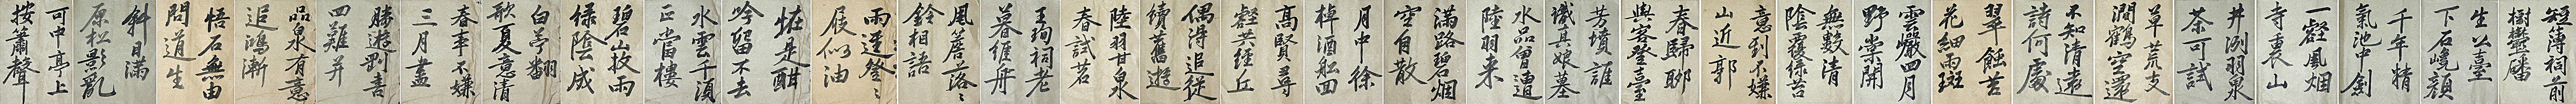 短簿祠前
樹鬱蟠
生公臺
下石巉顏
千年精
氣池中劍
一壑風烟
寺裏山
井冽羽泉
茶可試
草荒支
澗鶴空還
不知清遠
詩何處
翠蝕苔
花細雨斑
雲巖四月
野棠開
無數清
陰覆綠苔
意到不嫌
山近郭
春歸聊
與客登臺
芳墳誰
識真娘墓
水品曾遭
陸羽来
滿路碧烟
空自散
月中徐
棹酒船回
高賢尋
壑共經丘
偶得追從
續舊遊
陸羽甘泉
春試茗
王珣祠老
暮維舟
風簷落々
鈴相語
雨逕登々
屐似油
恠是酣
吟留不去
水雲千頃
正當樓
碧山收雨
綠陰成
白苧翻
歌夏意清
春事不嫌
三月盡
勝遊剛喜
四難并
品泉有意
追鴻漸
悟石無由
問道生
斜日滿
原松影亂
可中亭上
按簫聲